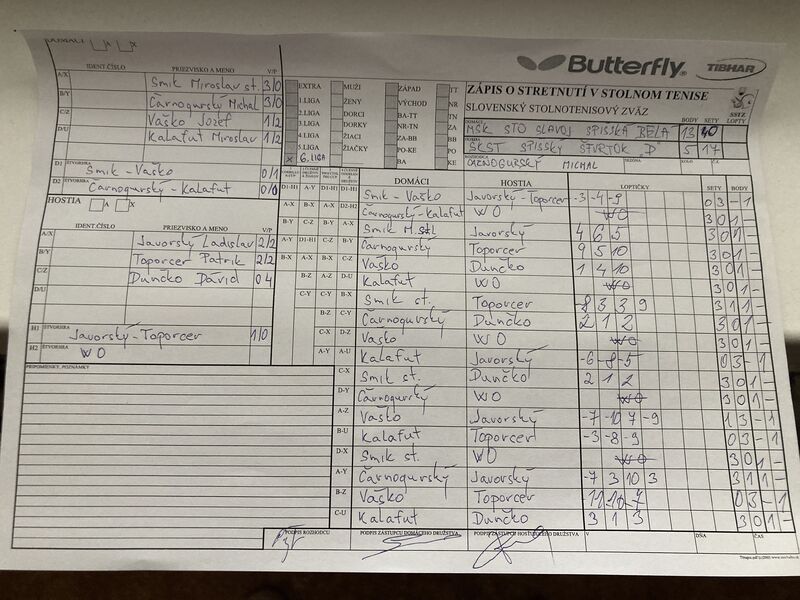 DOMÁCI A X
IDENT.ČÍSLO PRIEZVISKO A MENO V/P
A/X Smik Miroslav st. 3/0
B/Y Čarnogurský Michal 3/0
C/Z Vaško Jozef 1/2
D/U Kalafut Miroslav 1/2
D1 ŠTVORHRA Smik - Vaško 0/1
D2 ŠTVORHRA Čarnogurský - Kalafut 0/0
HOSTIA A X
IDENT.ČÍSLO PRIEZVISKO A MENO V/P
A/X Javorský Ladislav 2/2
B/Y Toporcer Patrik 2/2
C/Z Dunčko Dávid 0 4
D/U
H1 ŠTVORHRA Javorský - Toporcer 1/0
H2 ŠTVORHRA WO
PRIPOMIENKY, POZNÁMKY
Butterfly TIBHAR
ZÁPIS O STRETNUTÍ V STOLNOM TENISE
SLOVENSKÝ STOLNOTENISOVÝ ZVÄZ
SSTZ
BODY SETY LOPTY
EXTRA MUŽI ZÁPAD TT
1.LIGA ŽENY VÝCHOD NR
2.LIGA DORCI BA-TT TN
3.LIGA DORKY TN-NR ZA
4.LIGA ŽIACI ZA-BB BB
5.LIGA ŽIAČKY PO-KE PO
x 6. LIGA BA KE
DOMÁCI MŠK STO SLAVOJ SPIŠSKÁ BELÁ 13 40
HOSTIA ŠKST SPIŠSKÝ ŠTVRTOK "D" 5 17
ČARNOGURSKÝ MICHAL SEZÓNA KOLO Č.
DOMÁCI HOSTIA LOPTIČKY SETY BODY
D1-H1 A-Y D1-H1 D1-H1 Smik - Vaško Javorský - Toporcer -3 -4 -9 0 3 - 1
A-X B-X A-X D2-H2 Čarnogurský - Kalafut WO WO 3 0 1 -
B-Y C-Z B-Y A-X Smik M. st. Javorský 4 6 5 3 0 1 -
A-Y D1-H1 C-Z B-Y Čarnogurský Toporcer 9 5 10 3 0 1 -
B-X A-X B-X C-Z Vaško Dunčko 1 4 10 3 0 1 -
B-Z A-Z D-U Kalafut WO WO 3 0 1 -
C-Y C-Y B-X Smik st. Toporcer -8 3 3 9 3 1 1 -
B-Z C-Y Čarnogurský Dunčko 2 1 2 3 0 1 -
C-X D-Z Vaško WO WO 3 0 1 -
A-Y A-U Kalafut Javorský -6 -8 -5 0 3 - 1
C-X Smik st. Dunčko 2 1 2 3 0 1 -
D-Y Čarnogurský WO WO 3 0 1 -
A-Z Vaško Javorský -7 -10 7 -9 1 3 - 1
B-U Kalafut Toporcer -3 -8 -9 0 3 - 1
D-X Smik st. WO WO 3 0 1 -
A-Y Čarnogurský Javorský -7 3 10 3 3 1 1 -
B-Z Vaško Toporcer -11 -10 -7 0 3 - 1
C-U Kalafut Dunčko 3 1 3 3 0 1 -
PODPIS ROZHODCU PODPIS ZÁSTUPCU DOMÁCEHO DRUŽSTVA PODPIS ZÁSTUPCU HOSŤUJÚCEHO DRUŽSTVA V DŇA ČAS